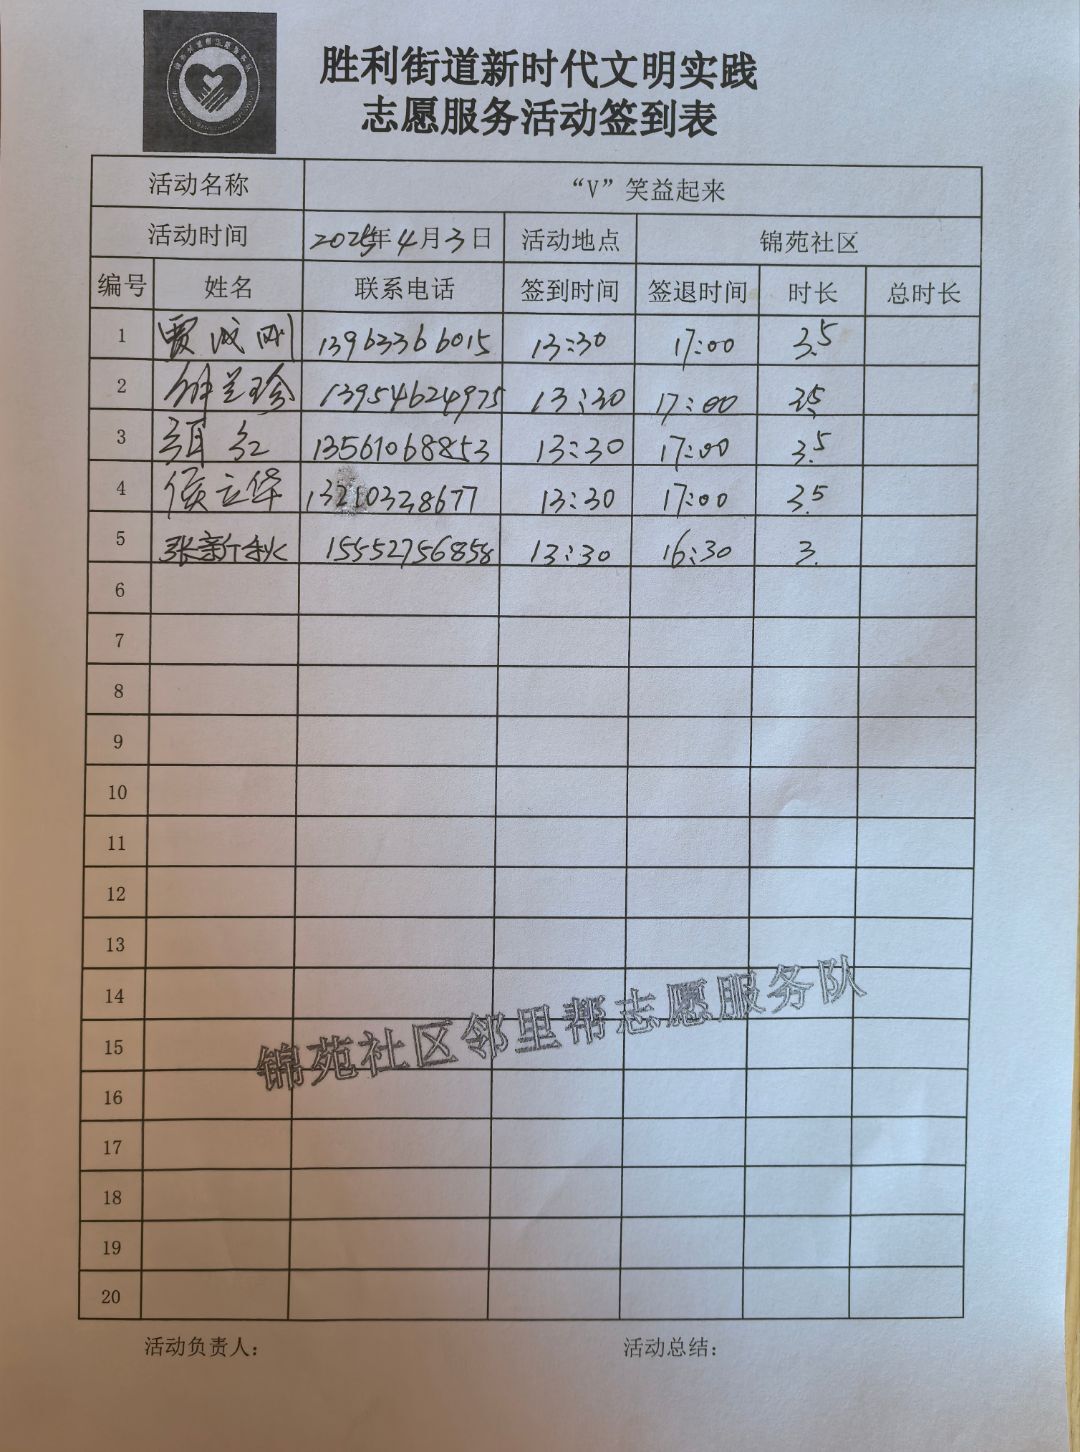 胜利街道新时代文明实践
志愿服务活动签到表
活动名称 “V”笑益起来
活动时间 2025年4月3日 活动地点 锦苑社区
编号 姓名 联系电话 签到时间 签退时间 时长 总时长
1 贾成刚 13963366015 13:30 17:00 3.5
2 钟兰珍 13954624975 13:30 17:00 3.5
3 红 13561068853 13:30 17:00 3.5
4 侯立华 13210328677 13:30 17:00 3.5
5 张新秋 15552756858 13:30 16:30 3
6
7
8
9
10
11
12
13
14
锦苑社区邻里帮志愿服务队
15
16
17
18
19
20
活动负责人： 活动总结：